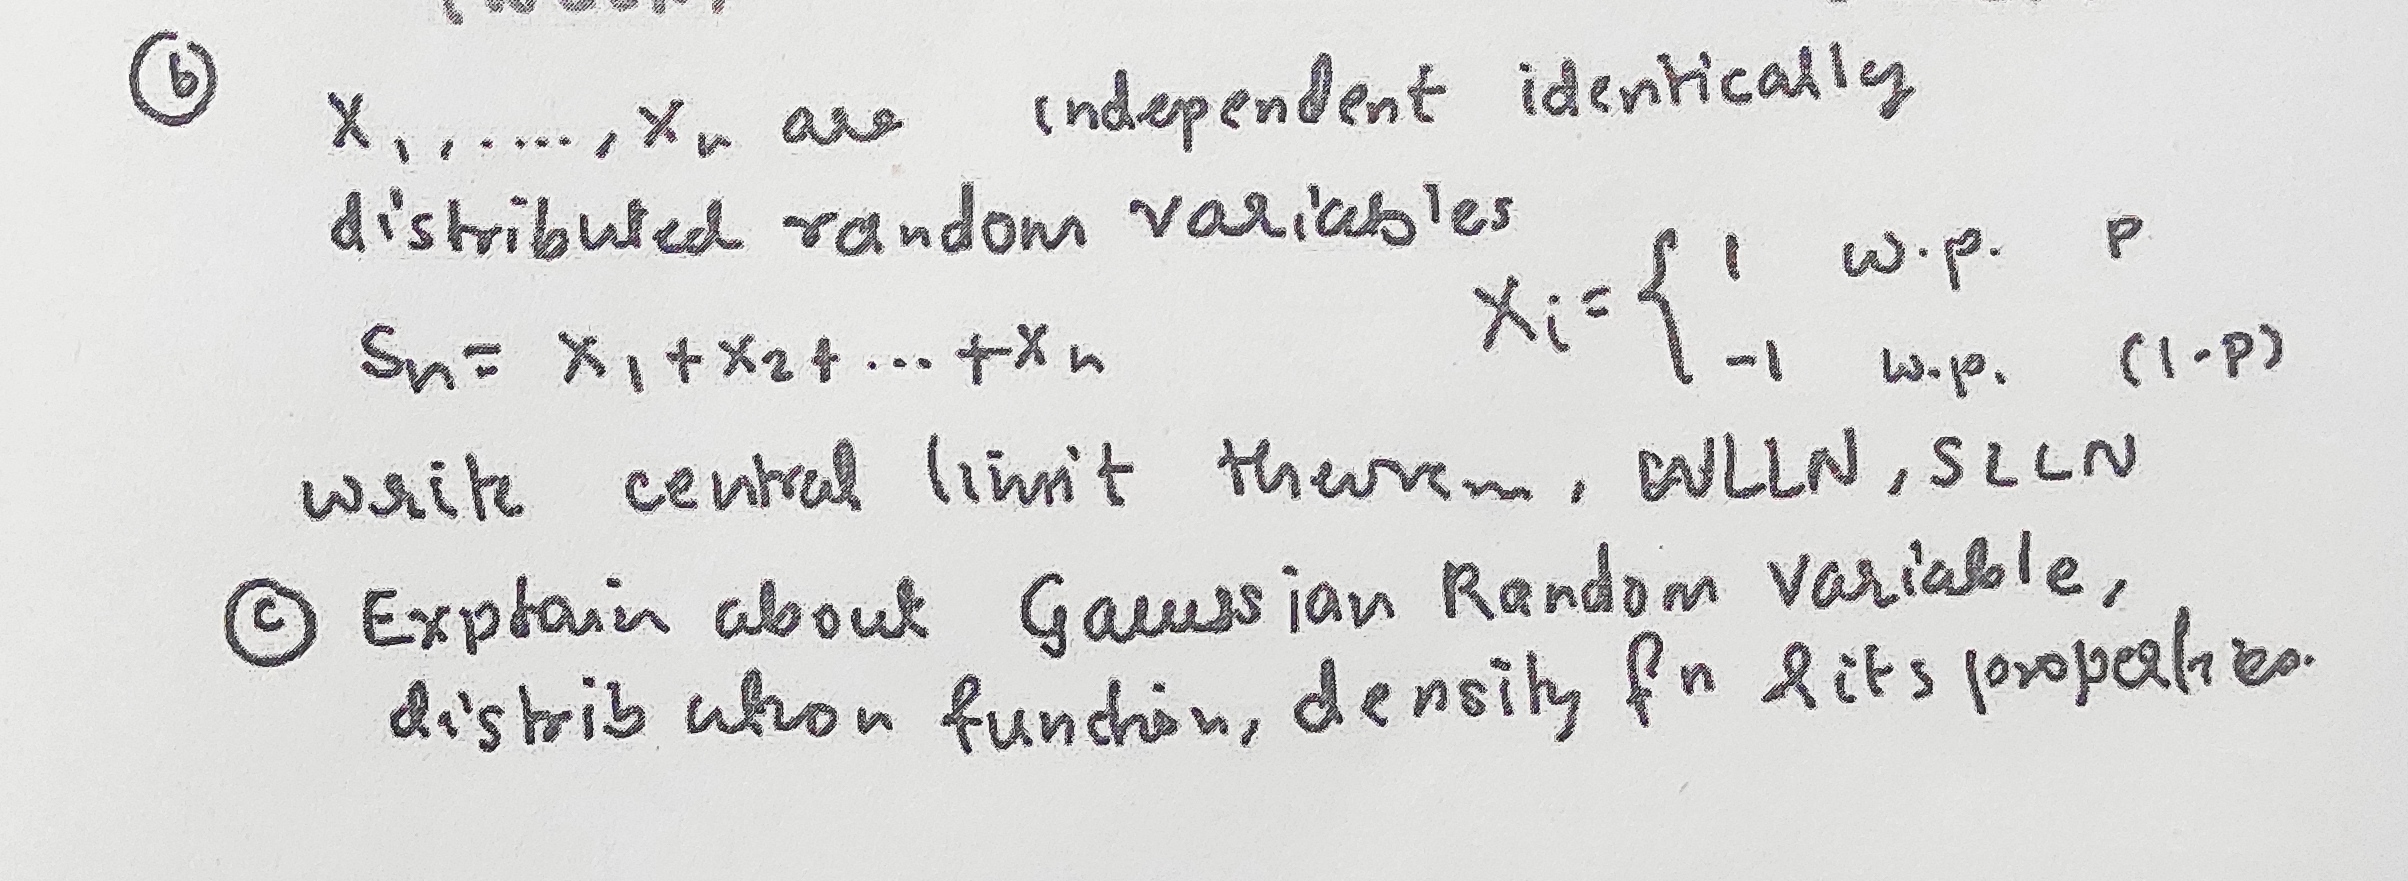 (b)
X1, ....., Xn are independent identically
distributed random variables
Xi = { 1 w.p. p
-1 w.p. (1-p)
Sn = X1 + X2 + ... + Xn
write central limit theorem, WLLN, SLLN
(c) Explain about Gaussian Random Variable,
distribution function, density fn & its properties.